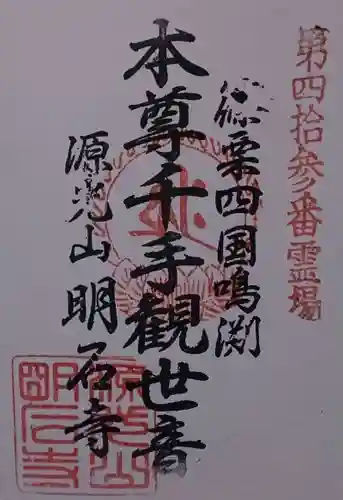 第四拾参番霊場
篠栗四国鳴渕
本尊千手観世音
源光山明石寺
源光山
明石寺